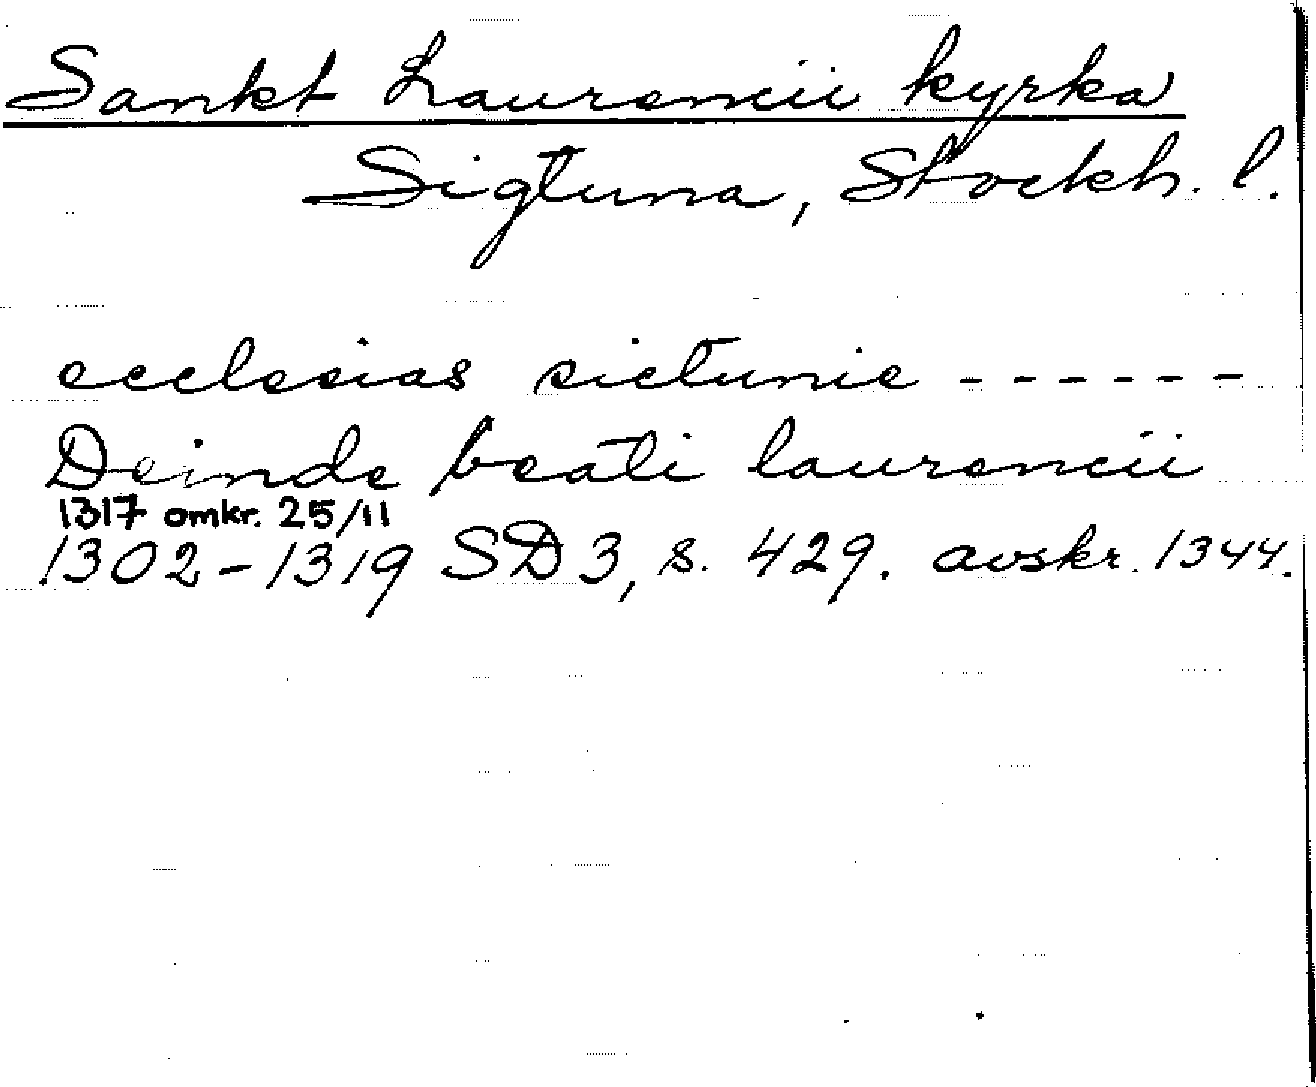 Sankt Laurencii kyrka
Sigtuna, Stockh. l.
ecclesias sictunie ------
Deinde beati laurencii
1317 omkr. 25/11
1302-1319 SD 3, s. 429. avskr. 1344.